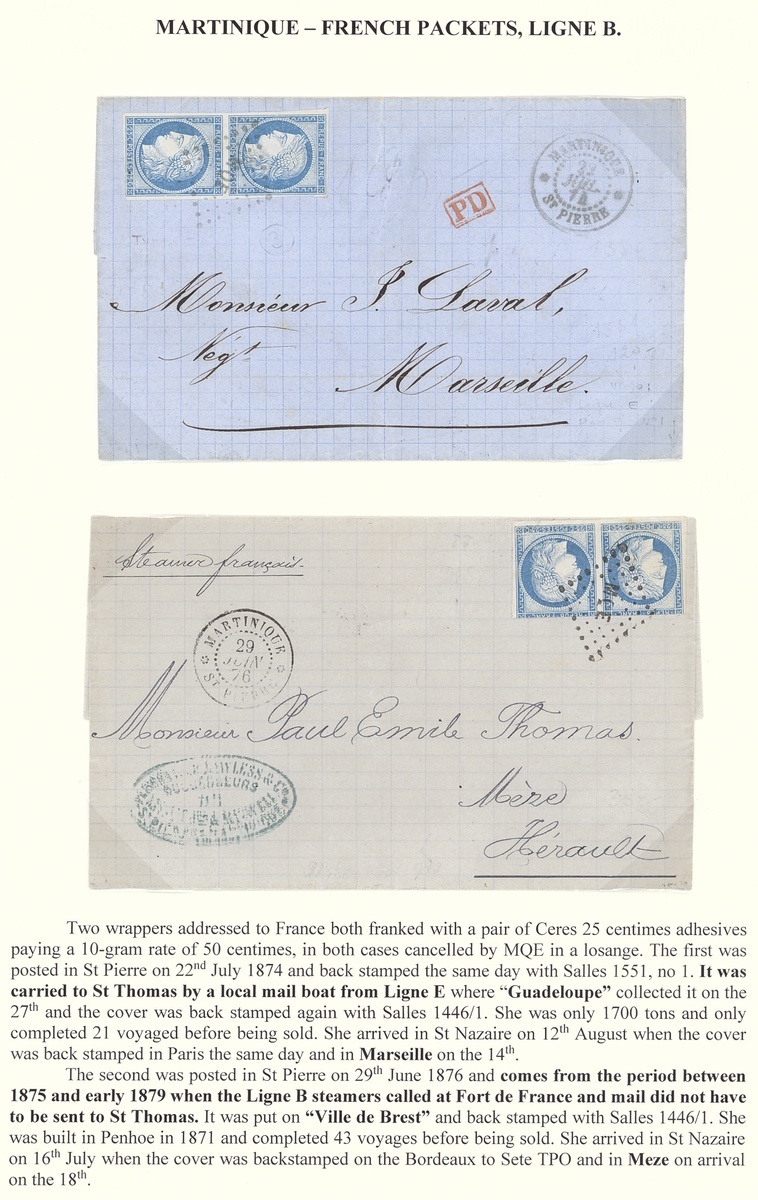 MARTINIQUE – FRENCH PACKETS, LIGNE B.
MARTINIQUE
22
JUIL
74
ST PIERRE
PD
Monsieur J. Laval,
Négt
Marseille.
Steamer français.
MARTINIQUE
29
JUIN
76
ST PIERRE
MQE
Monsieur Paul Emile Thomas.
Mèze
Hérault
SUCCESSEURS
Two wrappers addressed to France both franked with a pair of Ceres 25 centimes adhesives
paying a 10-gram rate of 50 centimes, in both cases cancelled by MQE in a losange. The first was
posted in St Pierre on 22nd July 1874 and back stamped the same day with Salles 1551, no 1. It was
carried to St Thomas by a local mail boat from Ligne E where “Guadeloupe” collected it on the
27th and the cover was back stamped again with Salles 1446/1. She was only 1700 tons and only
completed 21 voyaged before being sold. She arrived in St Nazaire on 12th August when the cover
was back stamped in Paris the same day and in Marseille on the 14th.
The second was posted in St Pierre on 29th June 1876 and comes from the period between
1875 and early 1879 when the Ligne B steamers called at Fort de France and mail did not have
to be sent to St Thomas. It was put on “Ville de Brest” and back stamped with Salles 1446/1. She
was built in Penhoe in 1871 and completed 43 voyages before being sold. She arrived in St Nazaire
on 16th July when the cover was backstamped on the Bordeaux to Sete TPO and in Meze on arrival
on the 18th.